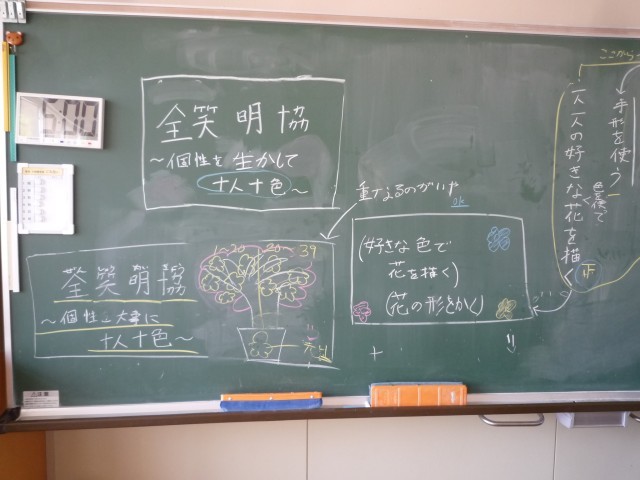 全笑明協
～個性を生かして
十人十色～
重なるのがいや
ok
ここから
→手形を使う
色を後で
一人一人の好きな花を描く
正
(好きな色で
花を描く)
(花の形をかく)
1～20
20～39
先生
全笑明協
～個性を大事に
十人十色～